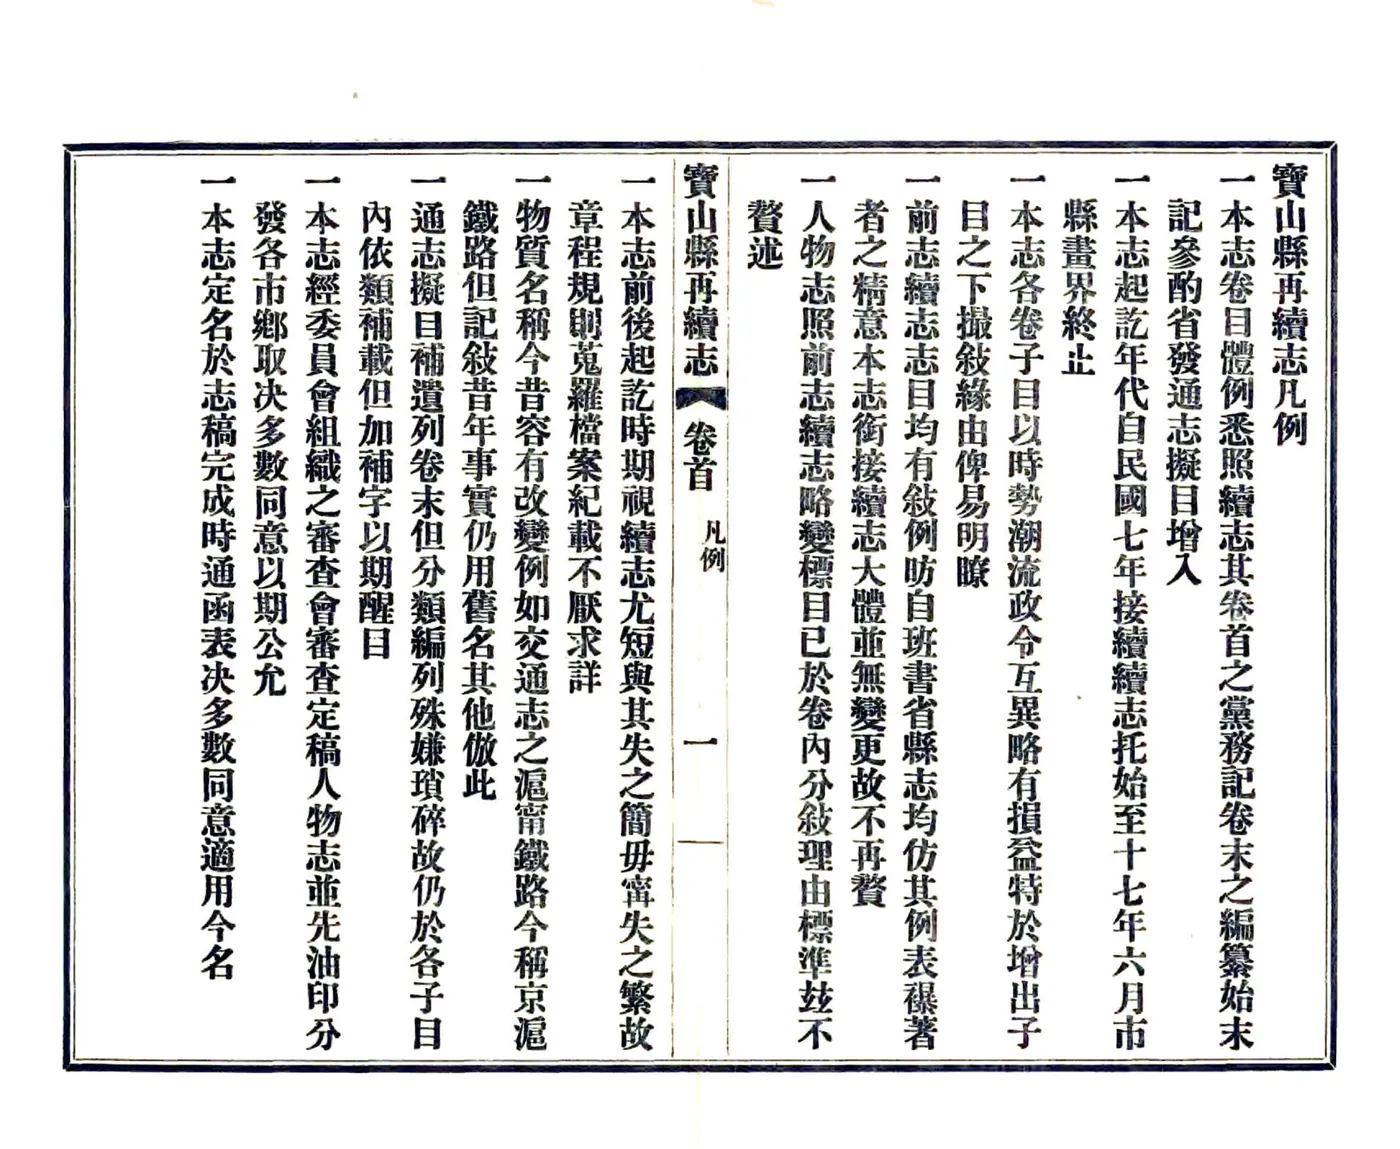 寶山縣再續志凡例
一本志卷目體例悉照續志其卷首之黨務記卷末之編纂始末
記參酌省發通志擬目增入
一本志起訖年代自民國七年接續續志托始至十七年六月市
縣畫界終止
一本志各卷子目以時勢潮流政令互異略有損益特於增出子
目之下撮敍緣由俾易明瞭
一前志續志志目均有敍例昉自班書省縣志均仿其例表襮著
者之精意本志銜接續志大體並無變更故不再贅
一人物志照前志續志略變標目已於卷內分敍理由標準玆不
贅述
寶山縣再續志
卷首
凡例
一
一本志前後起訖時期視續志尤短與其失之簡毋甯失之繁故
章程規則蒐羅檔案紀載不厭求詳
一物質名稱今昔容有改變例如交通志之滬甯鐵路今稱京滬
鐵路但記敍昔年事實仍用舊名其他倣此
一通志擬目補遺列卷末但分類編列殊嫌瑣碎故仍於各子目
內依類補載但加補字以期醒目
一本志經委員會組織之審查會審查定稿人物志並先油印分
發各市鄉取決多數同意以期公允
一本志定名於志稿完成時通函表決多數同意適用今名